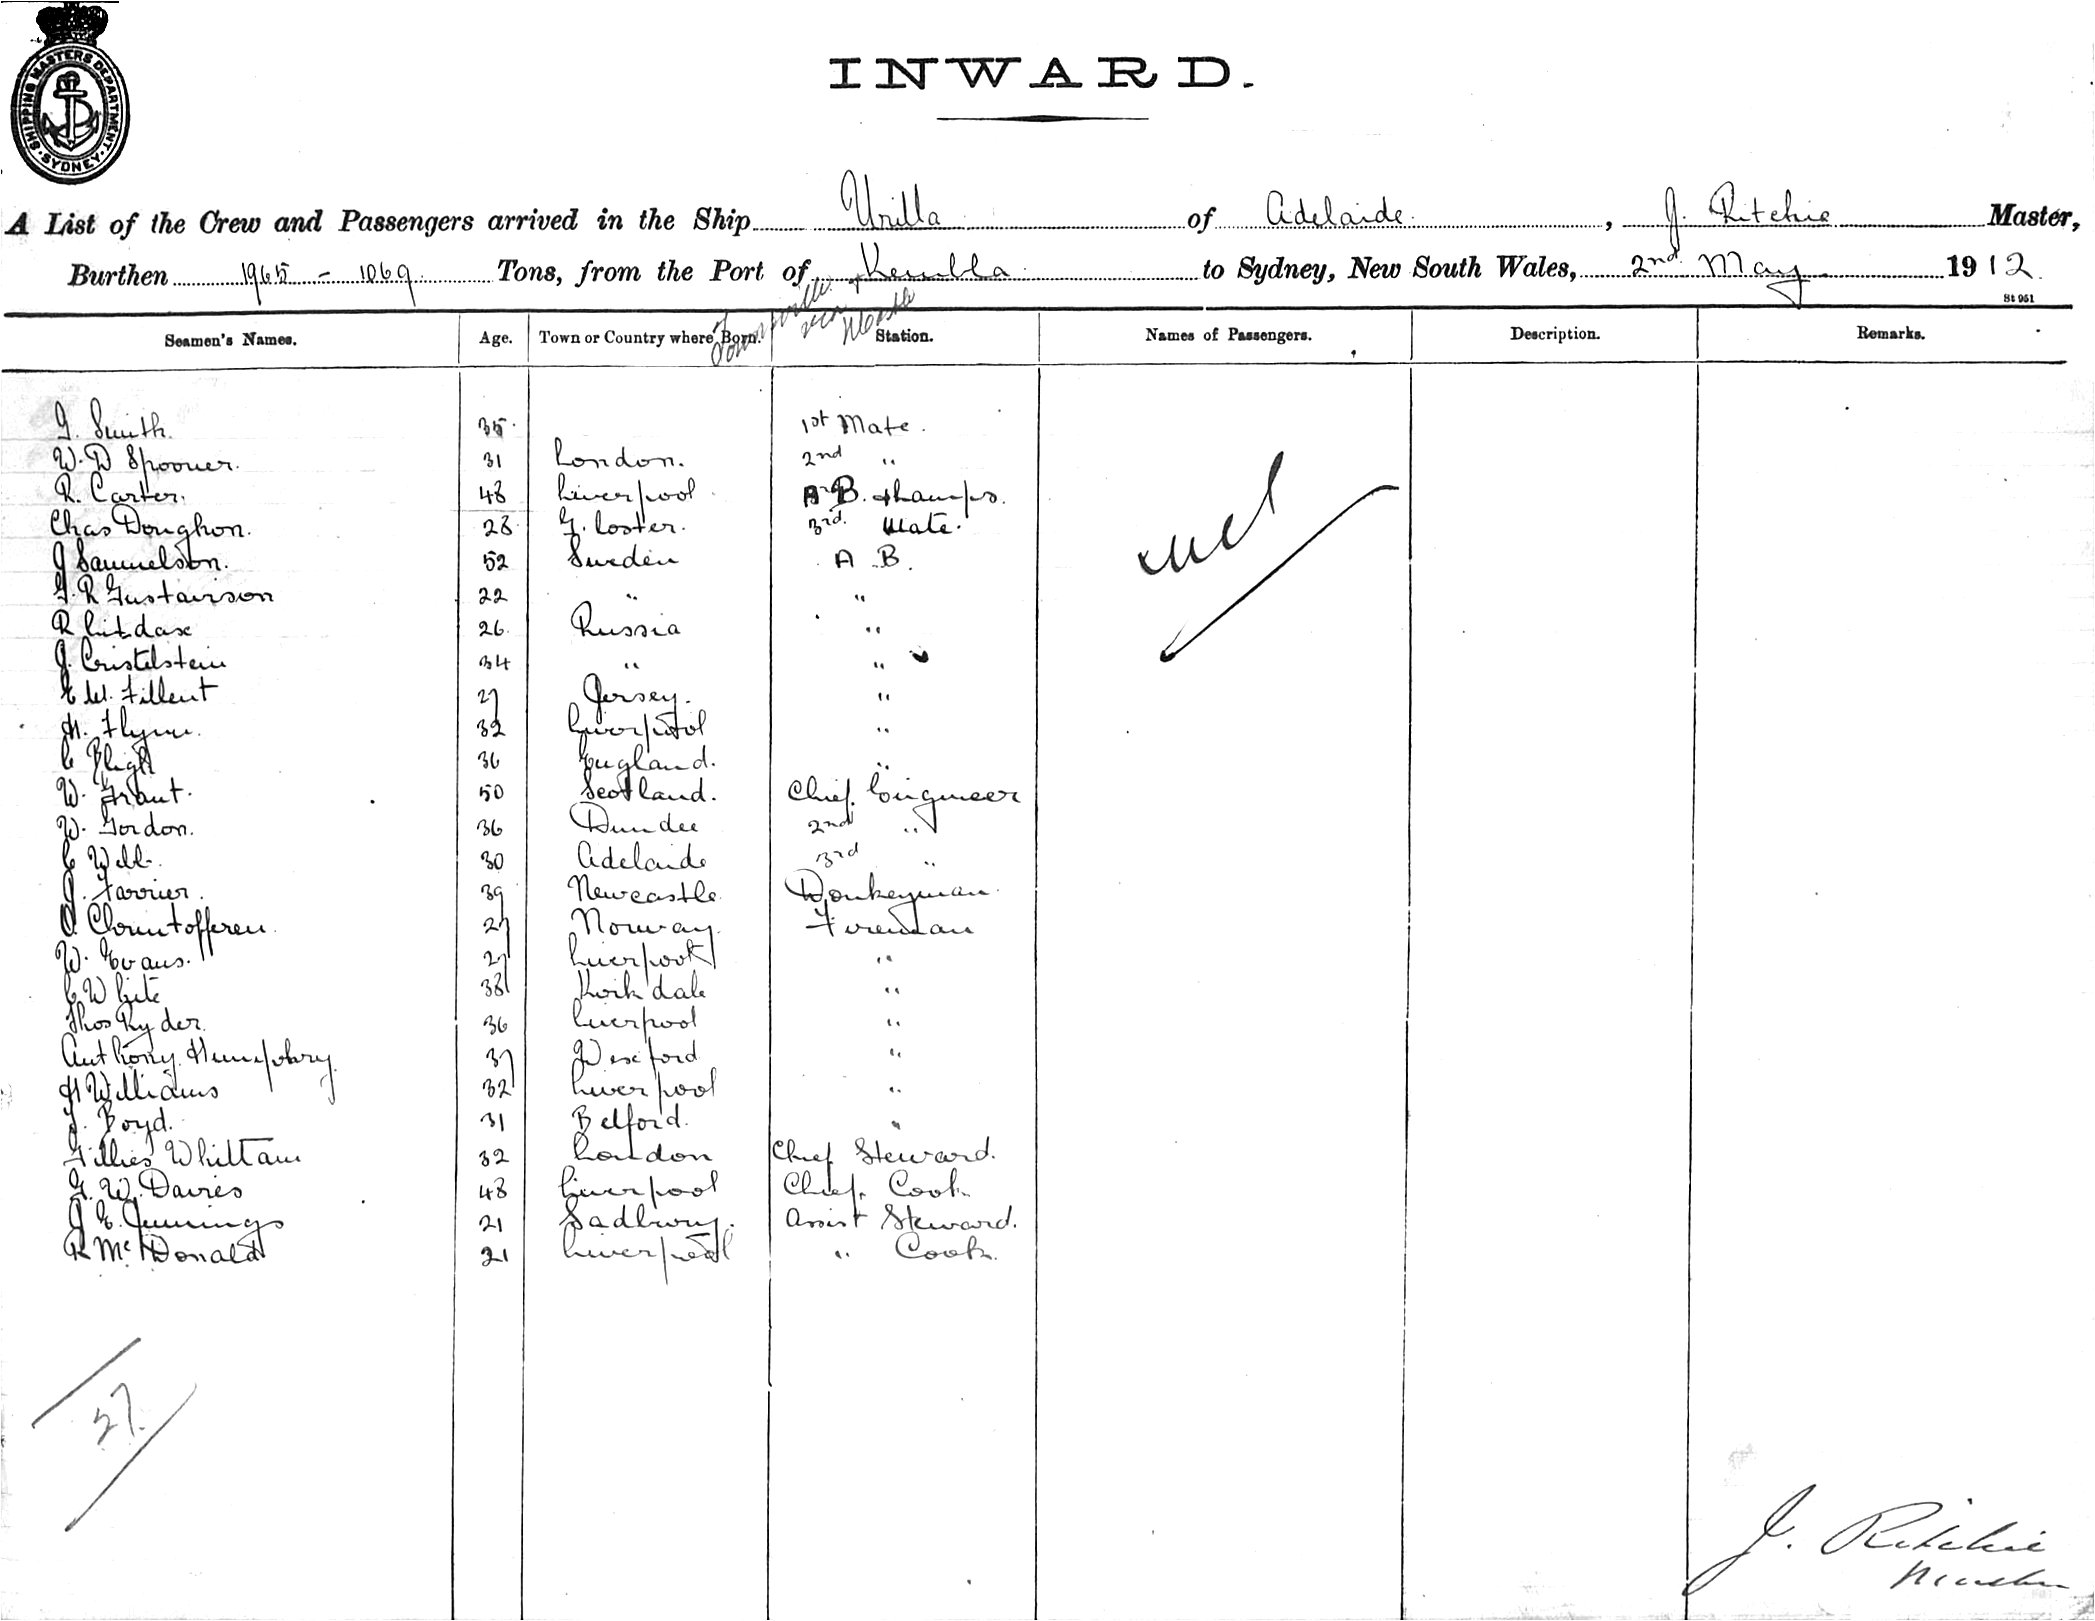 SHIPPING MASTERS DEPARTMENT
SYDNEY
INWARD.
A List of the Crew and Passengers arrived in the Ship Urilla of Adelaide, J. Ritchie Master,
Burthen 1965 - 1069 Tons, from the Port of Kembla to Sydney, New South Wales, 2nd May 1912.
St 951
Seamen's Names. Age. Town or Country where Born. Station. Names of Passengers. Description. Remarks.
G. Smith. 35. 1st Mate.
W. D Spooner. 31 London. 2nd "
R. Carter. 48 Liverpool A B.
Chas 28 G. loster. 3rd. Mate.
J Samuelson. 52 Sweden A B.
G. R Gustavson 22 " "
R 26. Russia "
J. 34 " "
E W. Fillent 27 Jersey. "
H. Flynn. 32 Liverpool "
C Bligh 36 England. "
W. Grant. 50 Scotland. Chief Engineer
W. Gordon. 36 Dundee 2nd "
C 30 Adelaide 3rd "
J. Farrier. 39 Newcastle Donkeyman.
O. 27 Norway. Fireman
W. Evans. 27 Liverpool "
C White 38 Kirkdale "
Thos Ryder. 36 Liverpool "
Anthony Humphry 37 Wexford "
H Williams 32 Liverpool "
J. Boyd. 31 Belford. "
Gillies Whittam 32 London Chief Steward.
G. W. Davies 48 Liverpool Chief. Cook.
J E. Jennings 21 Sadbury. Assist Steward.
R McDonald 21 Liverpool " Cook.
27.
J. Ritchie
Master